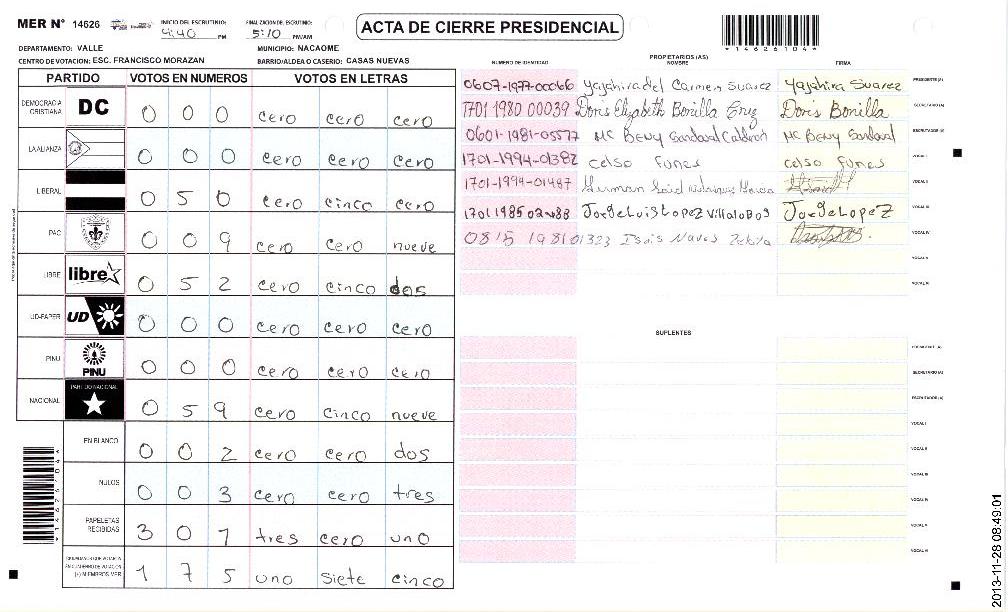 MER N° 14626
INICIO DEL ESCRUTINIO: 4:40 PM
FINALIZACION DEL ESCRUTINIO: 5:10 PM/AM
ACTA DE CIERRE PRESIDENCIAL
*14626104*
DEPARTAMENTO: VALLE
MUNICIPIO: NACAOME
CENTRO DE VOTACION: ESC. FRANCISCO MORAZAN
BARRIO/ALDEA O CASERIO: CASAS NUEVAS
PARTIDO VOTOS EN NUMEROS VOTOS EN LETRAS
DEMOCRACIA CRISTIANA DC 0 0 0 cero cero cero
LA ALIANZA 0 0 0 cero cero cero
LIBERAL 0 5 0 cero cinco cero
PAC 0 0 9 cero cero nueve
LIBRE libre 0 5 2 cero cinco dos
UD-FAPER UD 0 0 0 cero cero cero
PINU PINU 0 0 0 cero cero cero
NACIONAL PARTIDO NACIONAL 0 5 9 cero cinco nueve
EN BLANCO 0 0 2 cero cero dos
NULOS 0 0 3 cero cero tres
PAPELETAS RECIBIDAS 3 0 1 tres cero uno
CIUDADANOS QUE VOTARON EN CUADERNO DE VOTACION (+) MIEMBROS MER 1 7 5 uno siete cinco
PROPIETARIOS (AS)
NUMERO DE IDENTIDAD NOMBRE FIRMA
0607-1977-00066 Yajahira del Carmen Suarez Yajahira Suarez PRESIDENTE (A)
1701 1980 00039 Doris Elizabeth Bonilla Cruz Doris Bonilla SECRETARIO (A)
0601-1981-05577 MC Beny Sandoval Calderon MC Beny Sandoval ESCRUTADOR (A)
1701-1994-01382 celso funes celso funes VOCAL I
1701-1994-01487 VOCAL II
1701 1985 02488 Jorge Luis Lopez Villalobos Jorge Lopez VOCAL III
0815 1981 01323 VOCAL IV
VOCAL V
VOCAL VI
SUPLENTES
PRESIDENTE (A)
SECRETARIO (A)
ESCRUTADOR (A)
VOCAL I
VOCAL II
VOCAL III
VOCAL IV
VOCAL V
VOCAL VI
*14626104*
2013-11-28 08:49:01